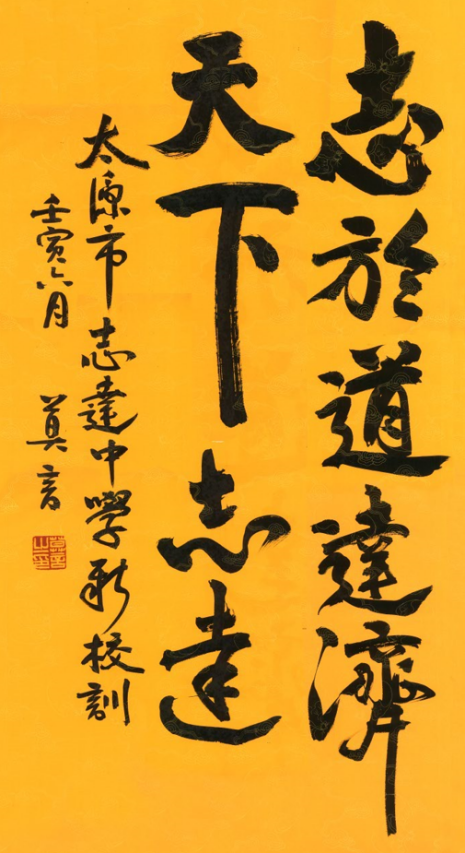 志於道達濟
天下志達
太原市志達中學新校訓
壬寅六月
莫言